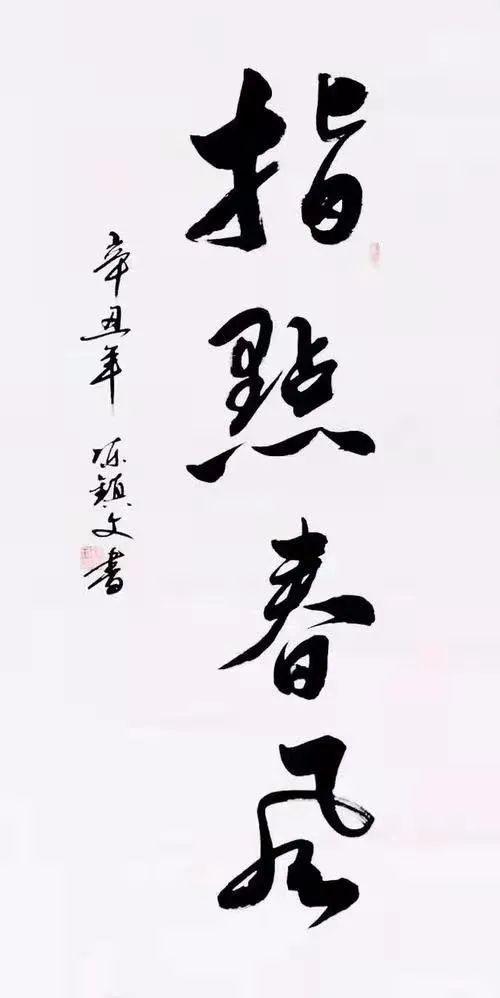 指點春風
辛丑年 陈鎮文書